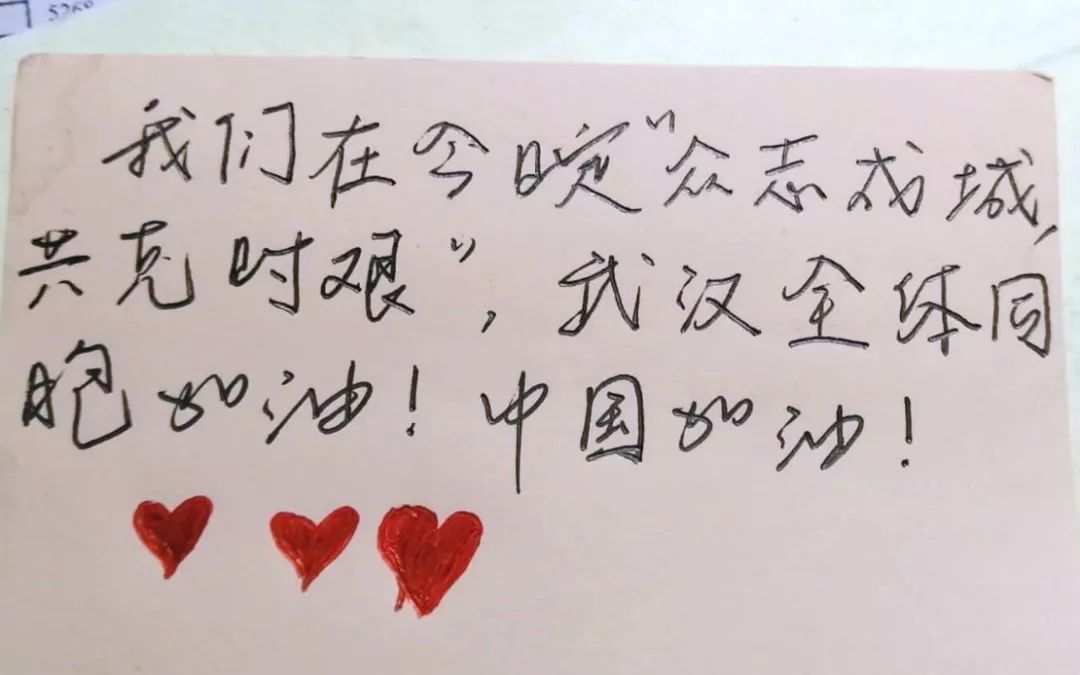 5268
我们在今晚"众志成城,
共克时艰",武汉全体同
胞加油!中国加油!